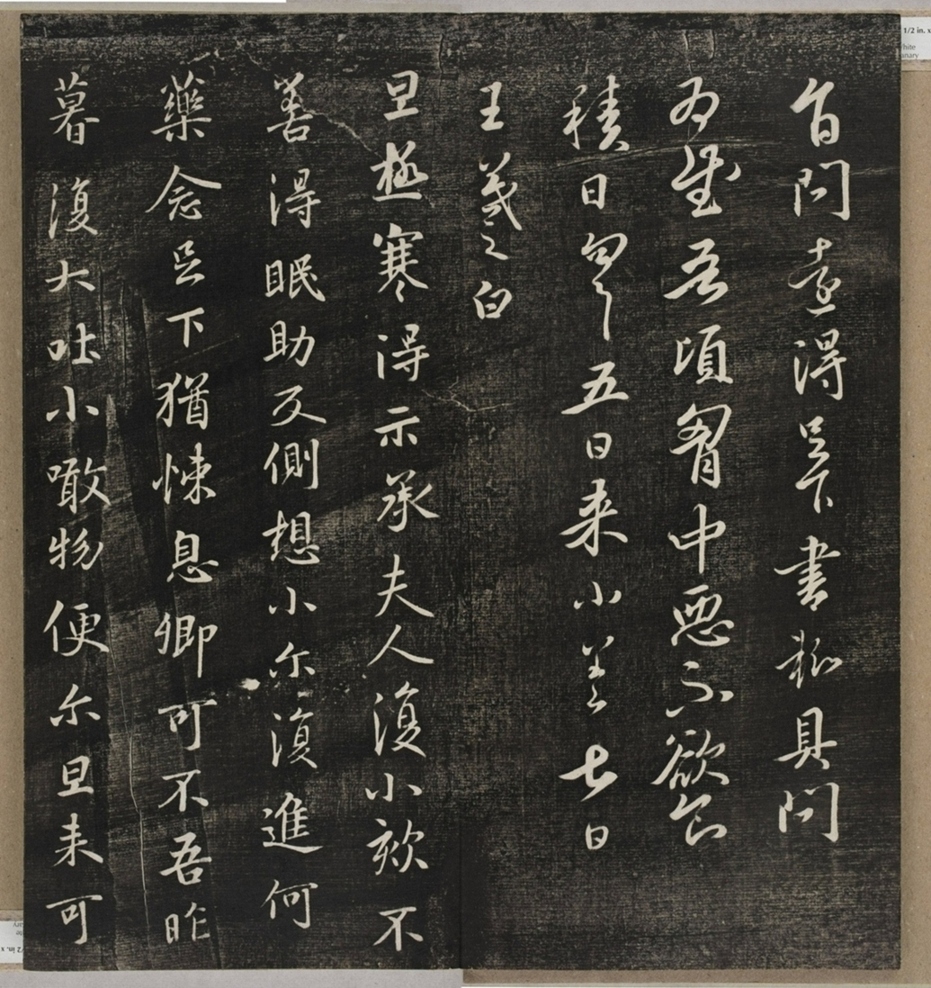 問得足下書具問
為慰吾頃胷中惡不欲食
積日匆匆五日来小差七日
王羲之白
旦極寒得示承夫人復小欬不
善得眠助反側想小尓復進何
藥念足下猶悚息卿可不吾昨
暮復大吐小噉物便尓旦来可
1/2 in. x